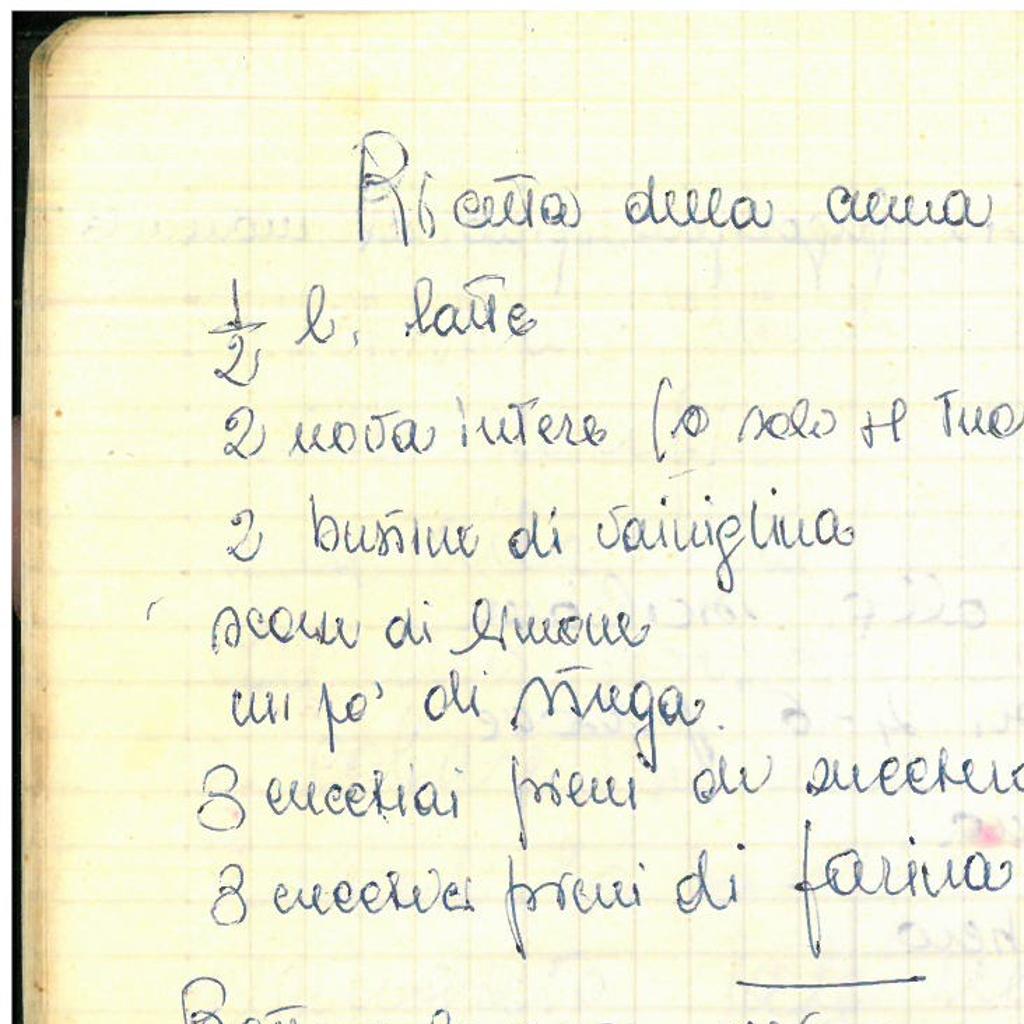 Ricetta della crema
1/2 l. latte
2 uova intere (o solo il tuo
2 bustine di vainiglina
scorze di limone
un po' di strega
3 cucchiai pieni di zucchero
3 cucchiai pieni di farina